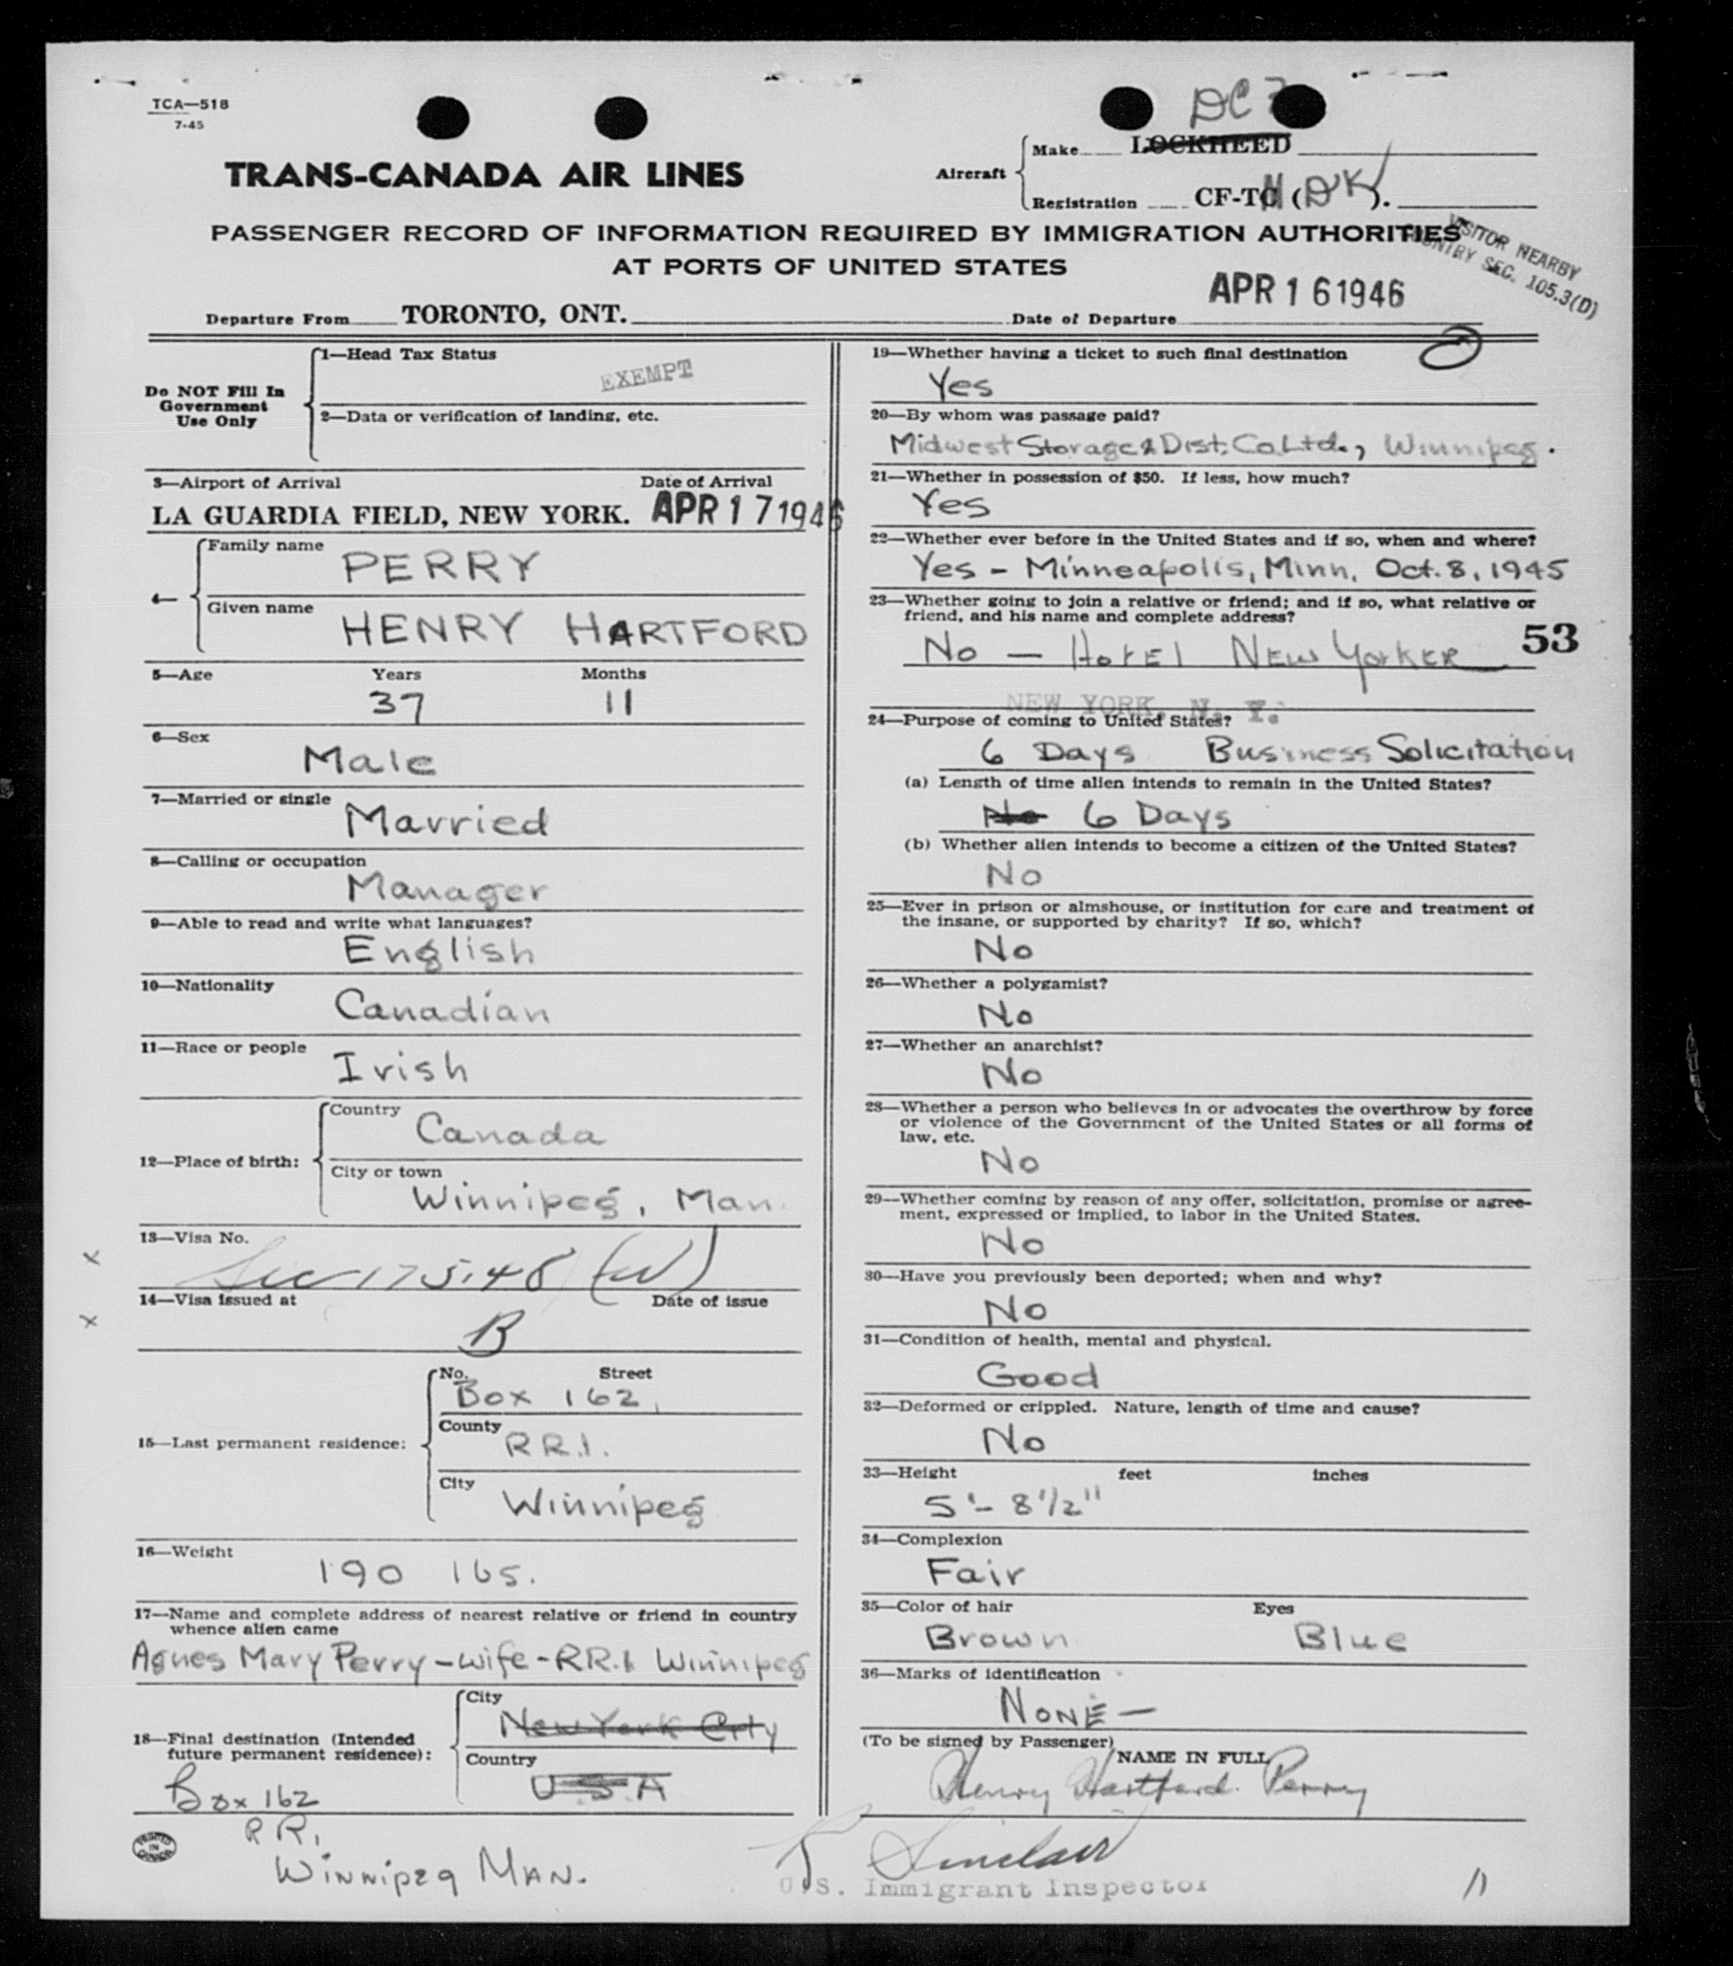 TCA—518
7-45
DC
TRANS-CANADA AIR LINES
Aircraft
Make LOCKHEED
Registration CF-TC (DK).
PASSENGER RECORD OF INFORMATION REQUIRED BY IMMIGRATION AUTHORITIES
AT PORTS OF UNITED STATES
VISITOR NEARBY
COUNTRY SEC. 105.3(D)
Departure From TORONTO, ONT. Date of Departure APR 16 1946
Do NOT Fill In
Government
Use Only
1—Head Tax Status
EXEMPT
2—Data or verification of landing, etc.
3—Airport of Arrival Date of Arrival
LA GUARDIA FIELD, NEW YORK. APR 17 1946
4—
Family name PERRY
Given name HENRY HARTFORD
5—Age Years Months
37 11
6—Sex
Male
7—Married or single
Married
8—Calling or occupation
Manager
9—Able to read and write what languages?
English
10—Nationality
Canadian
11—Race or people
Irish
12—Place of birth:
Country Canada
City or town
Winnipeg, Man.
13—Visa No.
Sec 175.48
14—Visa issued at Date of issue
B
15—Last permanent residence:
No. Street
Box 162,
County RR.1.
City Winnipeg
16—Weight
190 lbs.
17—Name and complete address of nearest relative or friend in country
whence alien came
Agnes Mary Perry-wife-RR.1 Winnipeg
18—Final destination (Intended
future permanent residence):
City
New York City
Country
USA
Box 162
RR,
Winnipeg MAN.
PRINTED
IN
CANADA
19—Whether having a ticket to such final destination
Yes
20—By whom was passage paid?
Midwest Storage & Dist. Co. Ltd., Winnipeg.
21—Whether in possession of $50. If less, how much?
Yes
22—Whether ever before in the United States and if so, when and where?
Yes - Minneapolis, Minn, Oct. 8, 1945
23—Whether going to join a relative or friend; and if so, what relative or
friend, and his name and complete address?
No — HOTEL NEW YORKER
53
NEW YORK, N. Y.
24—Purpose of coming to United States?
6 Days Business Solicitation
(a) Length of time alien intends to remain in the United States?
No 6 Days
(b) Whether alien intends to become a citizen of the United States?
No
25—Ever in prison or almshouse, or institution for care and treatment of
the insane, or supported by charity? If so, which?
No
26—Whether a polygamist?
No
27—Whether an anarchist?
No
28—Whether a person who believes in or advocates the overthrow by force
or violence of the Government of the United States or all forms of
law, etc.
No
29—Whether coming by reason of any offer, solicitation, promise or agree-
ment, expressed or implied, to labor in the United States.
No
30—Have you previously been deported; when and why?
No
31—Condition of health, mental and physical.
Good
32—Deformed or crippled. Nature, length of time and cause?
No
33—Height feet inches
5'- 8 1/2"
34—Complexion
Fair
35—Color of hair Eyes
Brown Blue
36—Marks of identification
NONE —
(To be signed by Passenger)
NAME IN FULL
Henry Hartford Perry
Sinclair
U.S. Immigrant Inspector
11